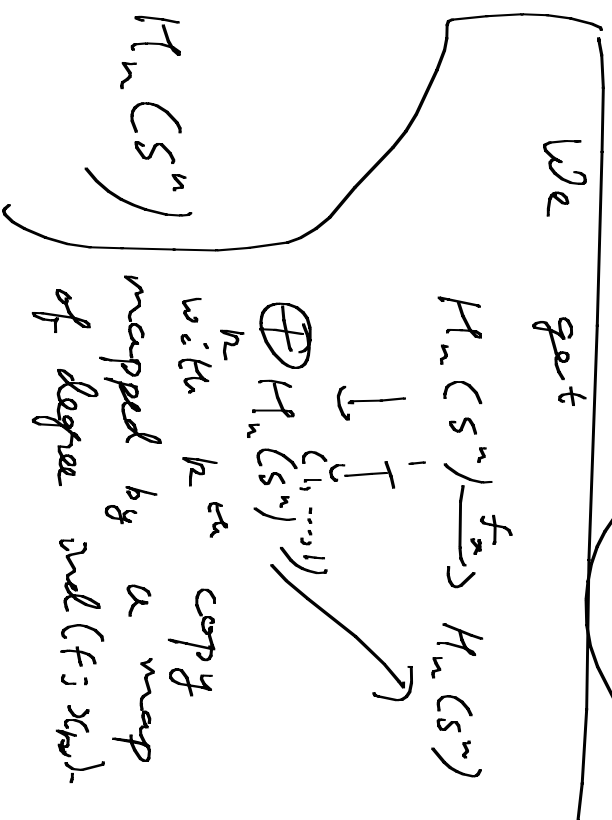 We get
H_n(S^n) \xrightarrow{f_*} H_n(S^n)
↓ 1
↧ (1, ..., 1)
\bigoplus_k H_n(S^n) ↗
with kth copy
mapped by a map
of degree ind(f; x_k).
H_n(S^n)